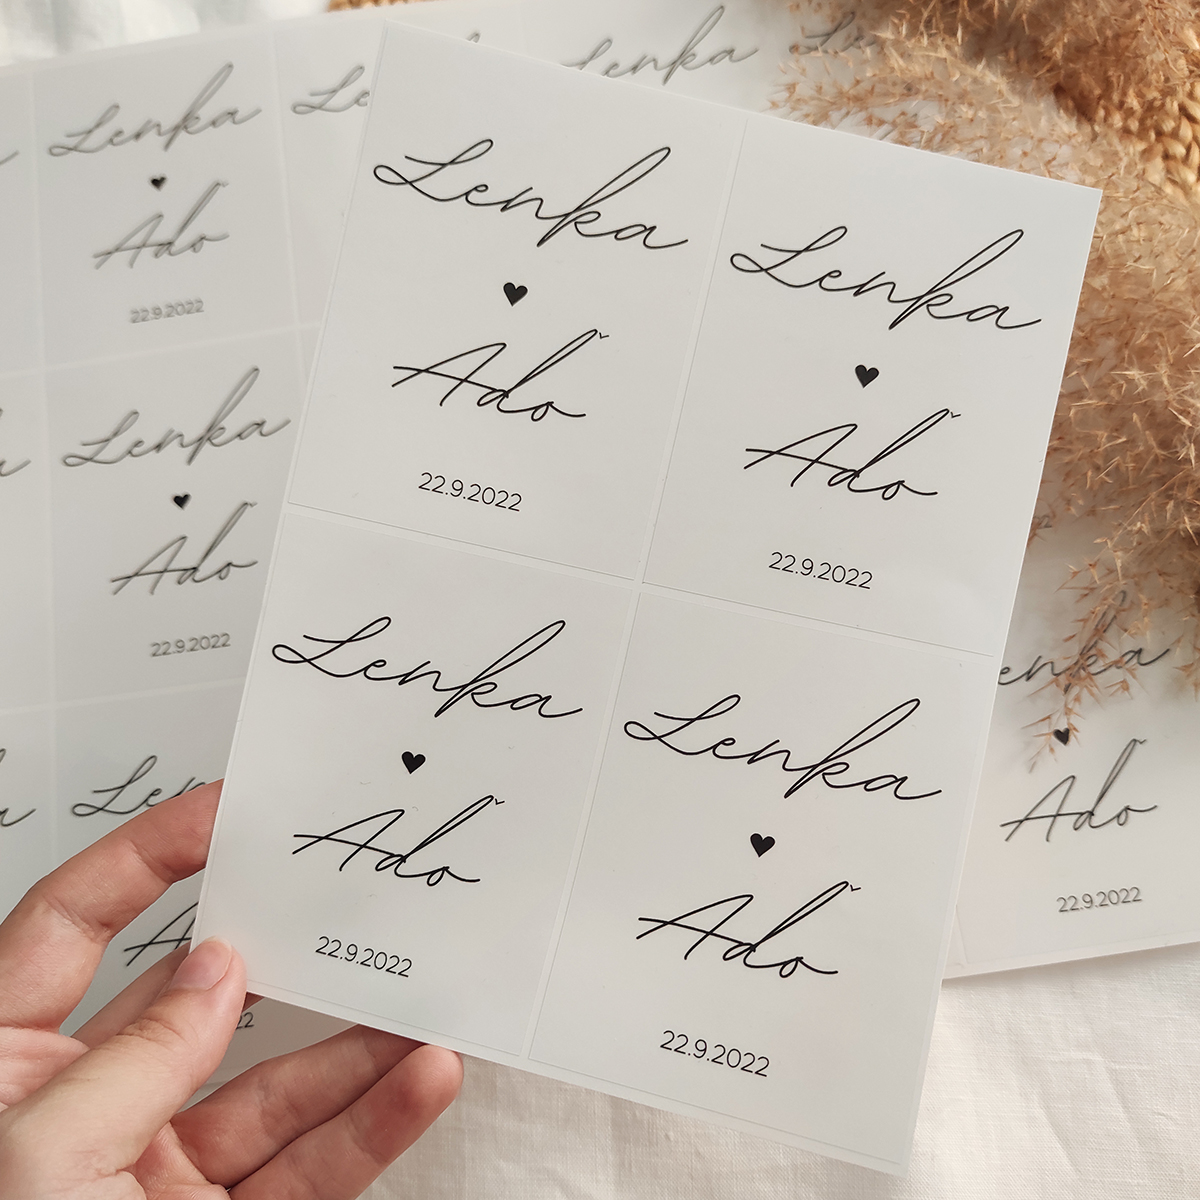 Lenka
Lenka
♥
Aďo
22.9.2022
Lenka
♥
Aďo
22.9.2022
Lenka
♥
Aďo
22.9.2022
Lenka
♥
Aďo
22.9.2022
Lenka
♥
Aďo
22.9.2022
Lenka
♥
Aďo
22.9.2022
♥
Aďo
22.9.2022